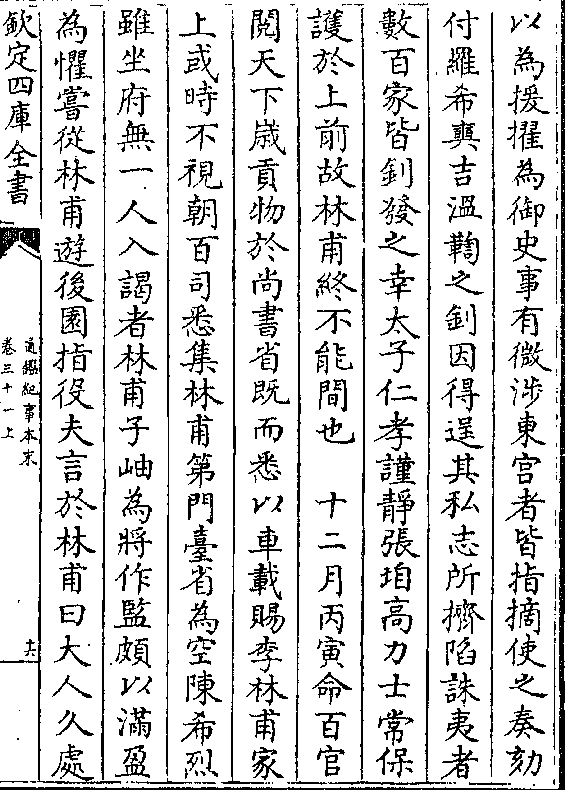 以為援擢為御史事有微涉東宮者皆指摘使之奏劾
付羅希奭吉溫鞫之釗因得逞其私志所擠陷誅夷者
數百家皆釗發之幸太子仁孝謹靜張垍高力士常保
護於上前故林甫終不能間也　十二月丙寅命百官
閱天下歲貢物於尚書省既而悉以車載賜李林甫家
上或時不視朝百司悉集林甫第門臺省為空陳希烈
雖坐府無一人入謁者林甫子岫為將作監頗以滿盈
為懼嘗從林甫遊後園指役夫言於林甫曰大人久處
欽定四庫全書
通鑑紀事本末
卷三十一上
十六